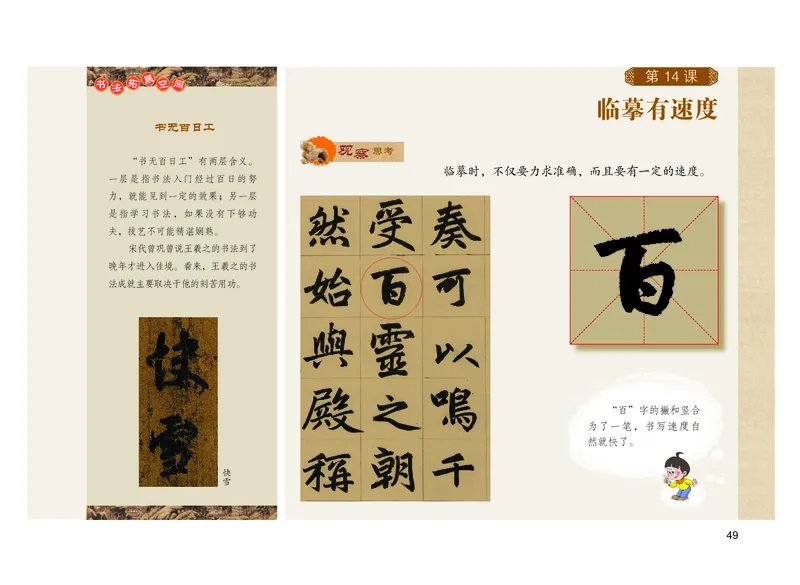 书法拓展空间
书无百日工
“书无百日工”有两层含义。
一层是指书法入门经过百日的努
力，就能见到一定的效果；另一层
是指学习书法，如果没有下够功
夫，技艺不可能精湛娴熟。
宋代曾巩曾说王羲之的书法到了
晚年才进入佳境。看来，王羲之的书
法成就主要取决于他的刻苦用功。
快雪
快雪
第 14 课
临摹有速度
观察思考
临摹时，不仅要力求准确，而且要有一定的速度。
奏可以鳴千
受百靈之朝
然始與殿稱
百
“百”字的撇和竖合
为了一笔，书写速度自
然就快了。
49